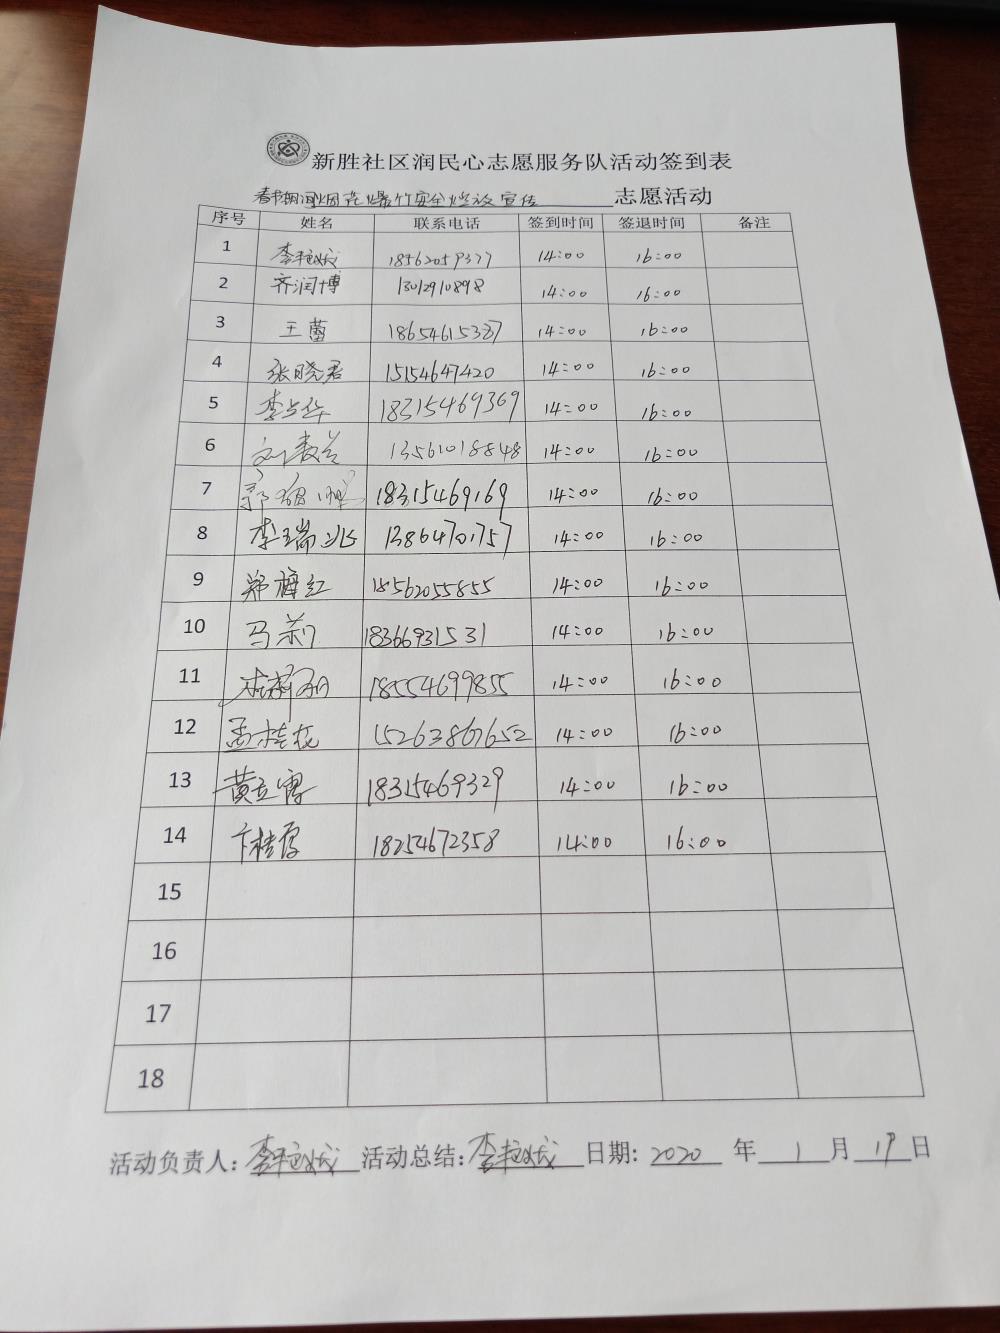 新胜社区润民心志愿服务队活动签到表
春节期间烟花爆竹安全燃放宣传 志愿活动
序号 姓名 联系电话 签到时间 签退时间 备注
1 18562059377 14:00 16:00
2 齐润博 13012910898 14:00 16:00
3 王蕾 18654615387 14:00 16:00
4 张晓君 15154647420 14:00 16:00
5 李占华 18315469369 14:00 16:00
6 刘春兰 13561018848 14:00 16:00
7 郭 18315469169 14:00 16:00
8 李瑞兆 13864701757 14:00 16:00
9 郑梅红 18562055855 14:00 16:00
10 马莉 18366931531 14:00 16:00
11 18554699855 14:00 16:00
12 孟桂花 15263867652 14:00 16:00
13 黄立霞 18315469329 14:00 16:00
14 卞桂存 18254672358 14:00 16:00
15
16
17
18
活动负责人: 活动总结: 日期: 2020 年 1 月 19 日